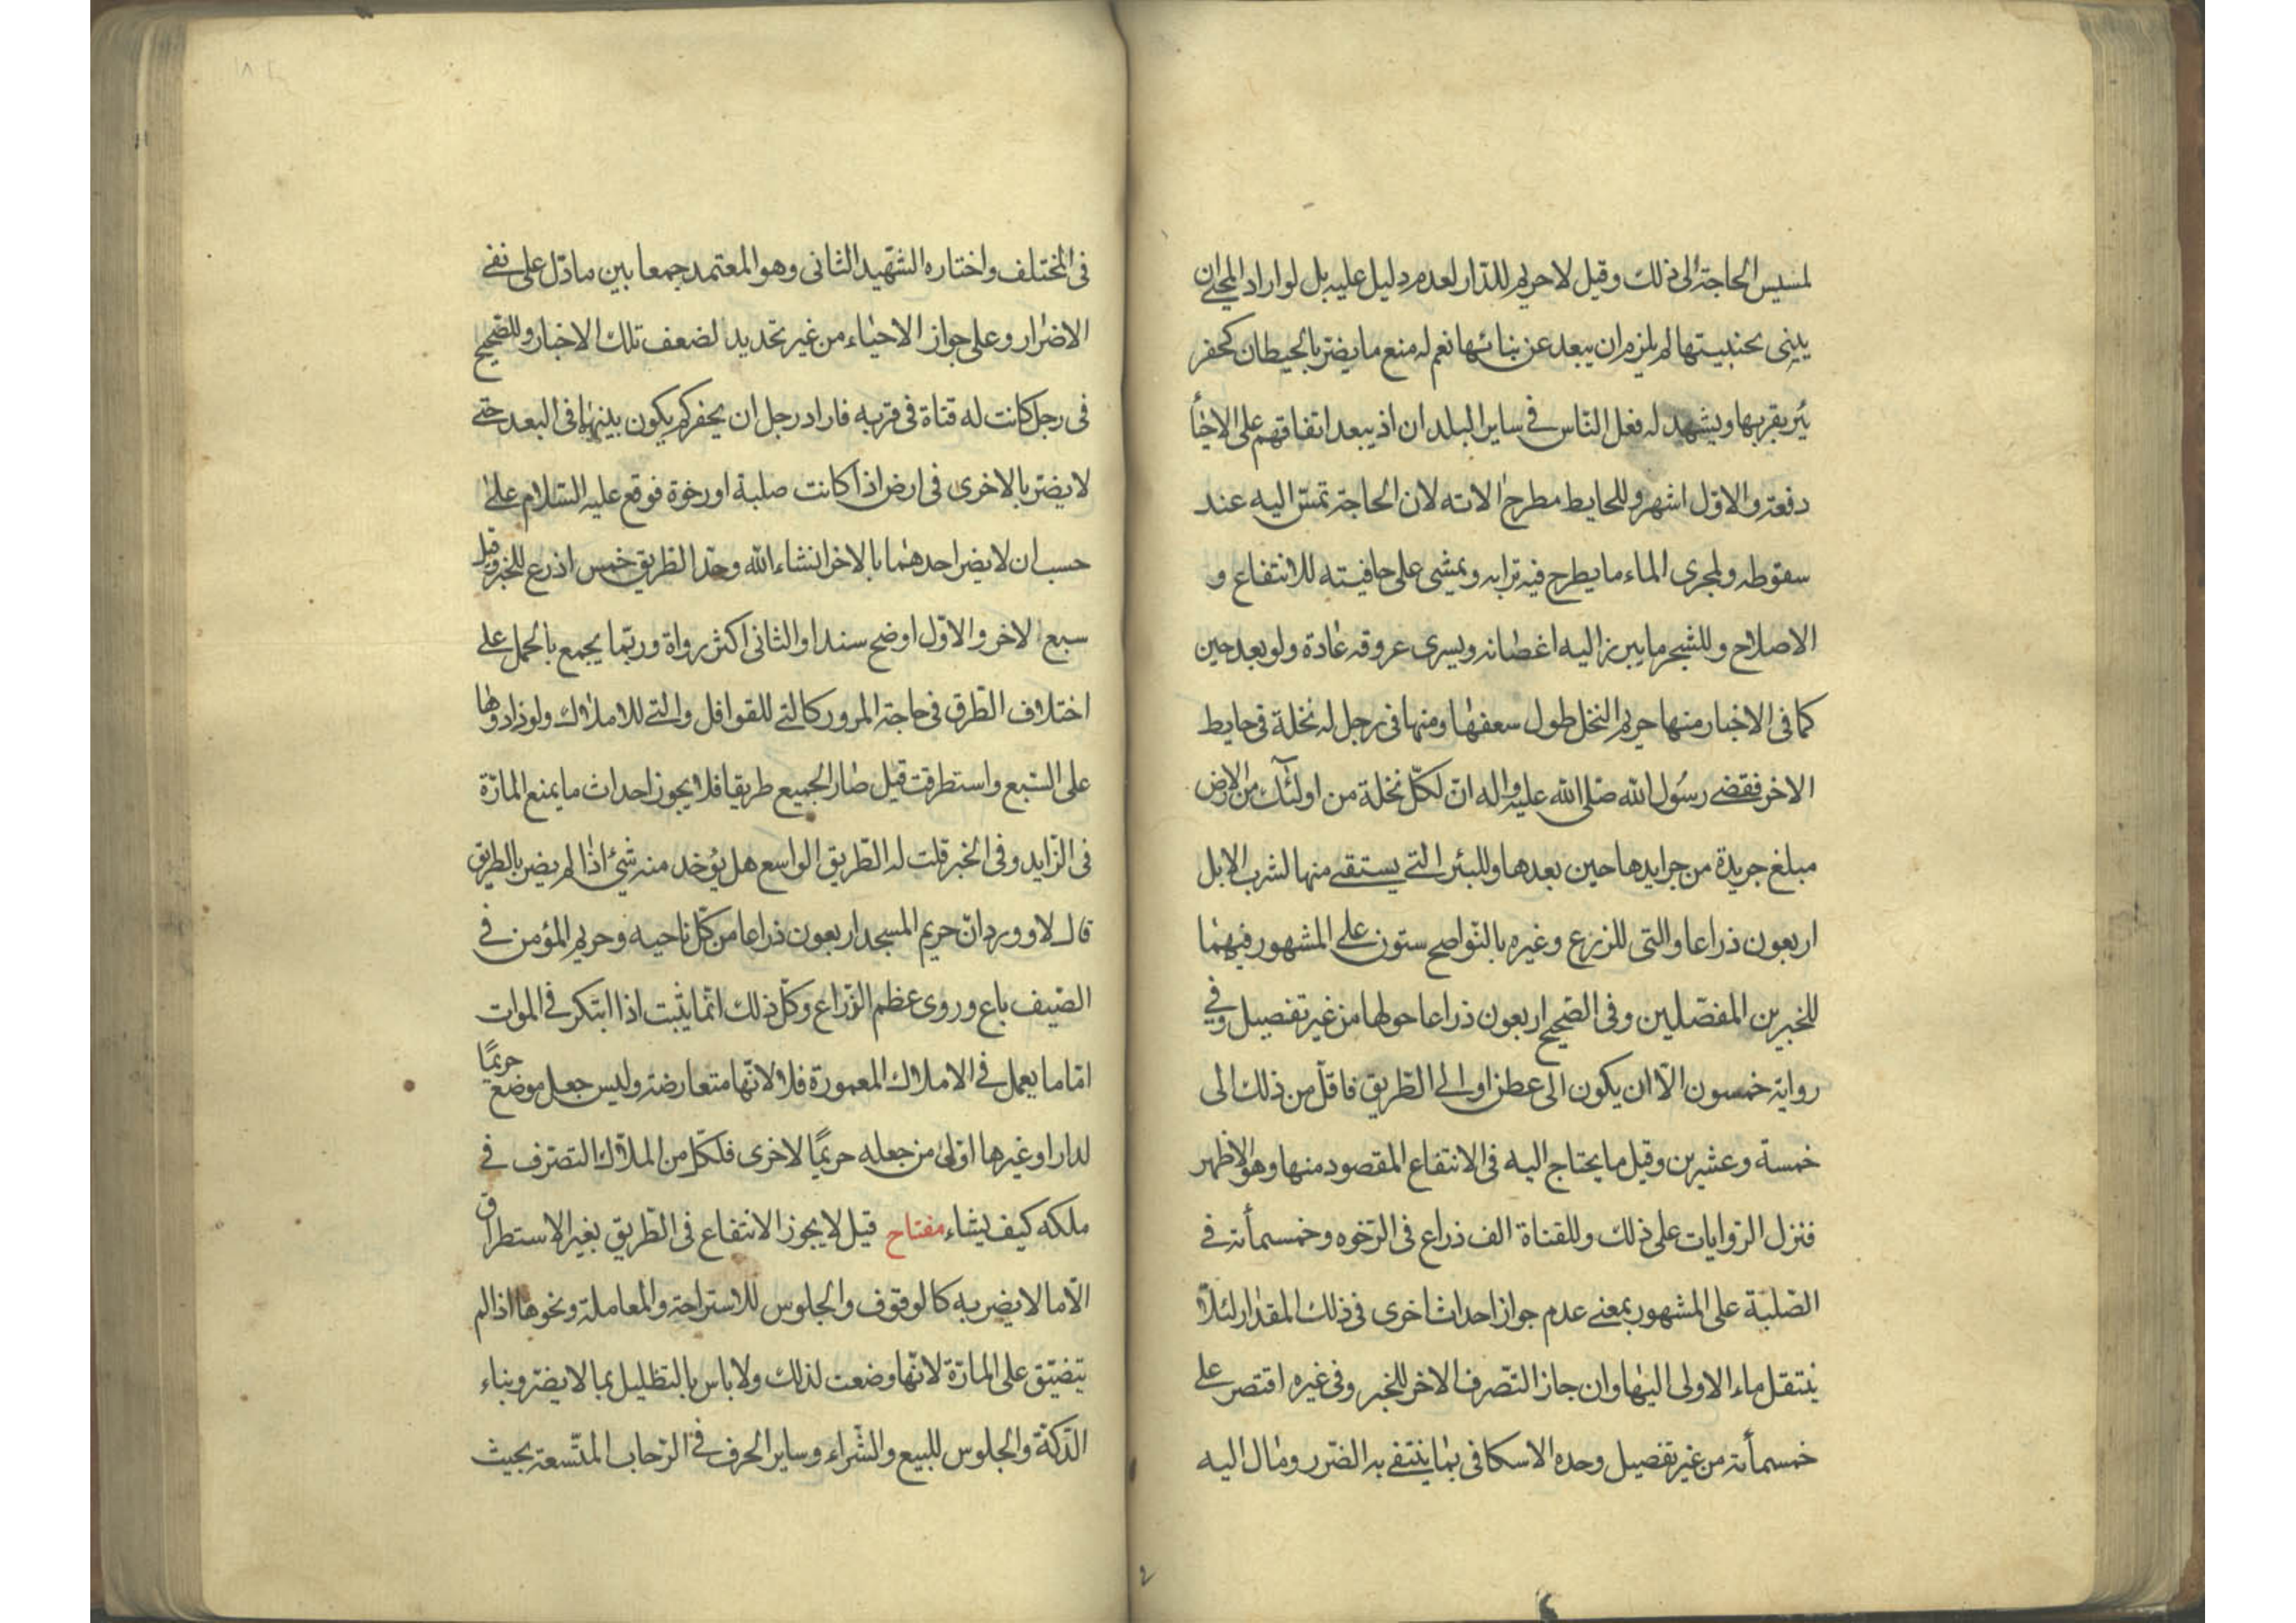 لمسيس الحاجة الى ذلك وقيل لا حريم للدّار لعدم دليل عليه بل لو اراد المحيى ان
يبنى بجنبيتها لم يلزم ان يبعد عن بنائها نعم له منع ما يضرّ بالحيطان كحفر
بئر بقربها ويشهد له فعل النّاس فى ساير البلدان اذ يبعد اتفاقهم على الاحيا
دفعة والاوّل اشهر وللحايط مطرح الاته لان الحاجة تمسّ اليه عند
سقوطه ولمجرى الماء ما يطرح فيه ترابه ويمشى على حافيته للانتفاع و
الاصلاح وللشجر ما يبرز اليه اغصانه ويسرى عروقه عادة ولو بعد حين
كما فى الاخبار منها حريم النخل طول سعفها ومنها فى رجل له نخلة فى حايط
الاخر فقضى رسول الله صلى الله عليه واله انّ لكلّ نخلة من اولئك من الارض
مبلغ جريدة من جرايدها حين بعدها وللبئر التى يستقى منها لشرب الابل
اربعون ذراعا والتى للزرع وغيره بالنّواضح ستون على المشهور فيهما
للخبرين المفصّلين وفى الصّحيح اربعون ذراعا حولها من غير تفصيل وفى
رواية خمسون الّا ان يكون الى عطن او الى الطّريق فاقلّ من ذلك الى
خمسة وعشرين وقيل ما يحتاج اليه فى الانتفاع المقصود منها وهو الاظهر
فنزل الرّوايات على ذلك وللقناة الف ذراع فى الرّخوه وخمسمأة فى
الصّلبة على المشهور بمعنى عدم جواز احداث اخرى فى ذلك المقدار لئلّا
ينتقل ماء الاولى اليها وان جاز التّصرف الاخر للخبر وفى غيره اقتصر على
خمسمأة من غير تفصيل وحده الاسكافى بما ينتفى به الضّرر ومال اليه
فى المختلف واختاره الشّهيد الثانى وهو المعتمد جمعا بين ما دلّ على نفى
الاضرار وعلى جواز الاحياء من غير تحديد لضعف تلك الاخبار وللصّحيح
فى رجل كانت له قناة فى قريه فاراد رجل ان يحفر كم يكون بينهما فى البعد حتى
لا يضرّ بالاخرى فى ارض اذا كانت صلبة او رخوة فوقع عليه السّلام على
حسب ان لا يضر احدهما بالاخر انشاء الله وحدّ الطّريق خمس اذرع للخبر وقيل
سبع الاخر والاوّل اوضح سندا والثانى اكثر رواة وربّما يجمع بالحمل على
اختلاف الطّرق فى حاجة المرور كالتى للقوافل والتى للاملاك ولو زادوها
على السّبع واستطرقت قيل صار الجميع طريقا فلا يجوز احداث ما يمنع المارّة
فى الزّايد وفى الخبر قلت له الطّريق الواسع هل يؤخد منه شئ اذا لم يضر بالطريق
قال لا وورد انّ حريم المسجد اربعون ذراعا من كلّ ناحيه وحريم المؤمن فى
الصّيف باع وروى عظم الذّراع وكلّ ذلك انّما يثبت اذا ابتكر فى الموات
امّا ما يعمل فى الاملاك المعمورة فلا لانّها متعارضة وليس جعل موضع حريمًا
لدار او غيرها اولى من جعله حريمًا لاخرى فلكلّ من الملّاك التصرّف فى
ملكه كيف يشاء مفتاح قيل لا يجوز الانتفاع فى الطّريق بغير الاستطراق
الّا ما لا يضر به كالوقوف والجلوس للاستراحة والمعاملة ونحوها اذا لم
يتضيّق على المارّة لانّها وضعت لذلك ولا باس بالتظليل بما لا يضرّ وبناء
الدّكّة والجلوس للبيع والشّراء وساير الحرف فى الرّحاب المتّسعة بحيث